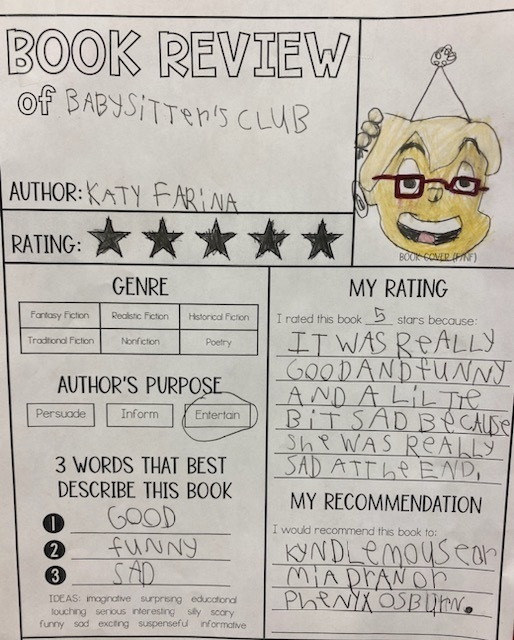 BOOK REVIEW
of BABYSITTER'S CLUB
AUTHOR: KATY FARINA
RATING:
BOOK COVER (F/NF)
GENRE
Fantasy Fiction Realistic Fiction Historical Fiction
Traditional Fiction Nonfiction Poetry
AUTHOR'S PURPOSE
Persuade Inform Entertain
3 WORDS THAT BEST
DESCRIBE THIS BOOK
1 GOOD
2 fuNNY
3 SAD
IDEAS: imaginative surprising educational
touching serious interesting silly scary
funny sad exciting suspenseful informative
MY RATING
I rated this book 5 stars because:
IT WAS ReALLY
GOOD AND fuNNY
AND A LILTIE
BIT SAD BECAUSE
She WAS REALLY
SAD AT The END.
MY RECOMMENDATION
I would recommend this book to:
KYNDLe
MIA OR
PheNYX OSBURN.